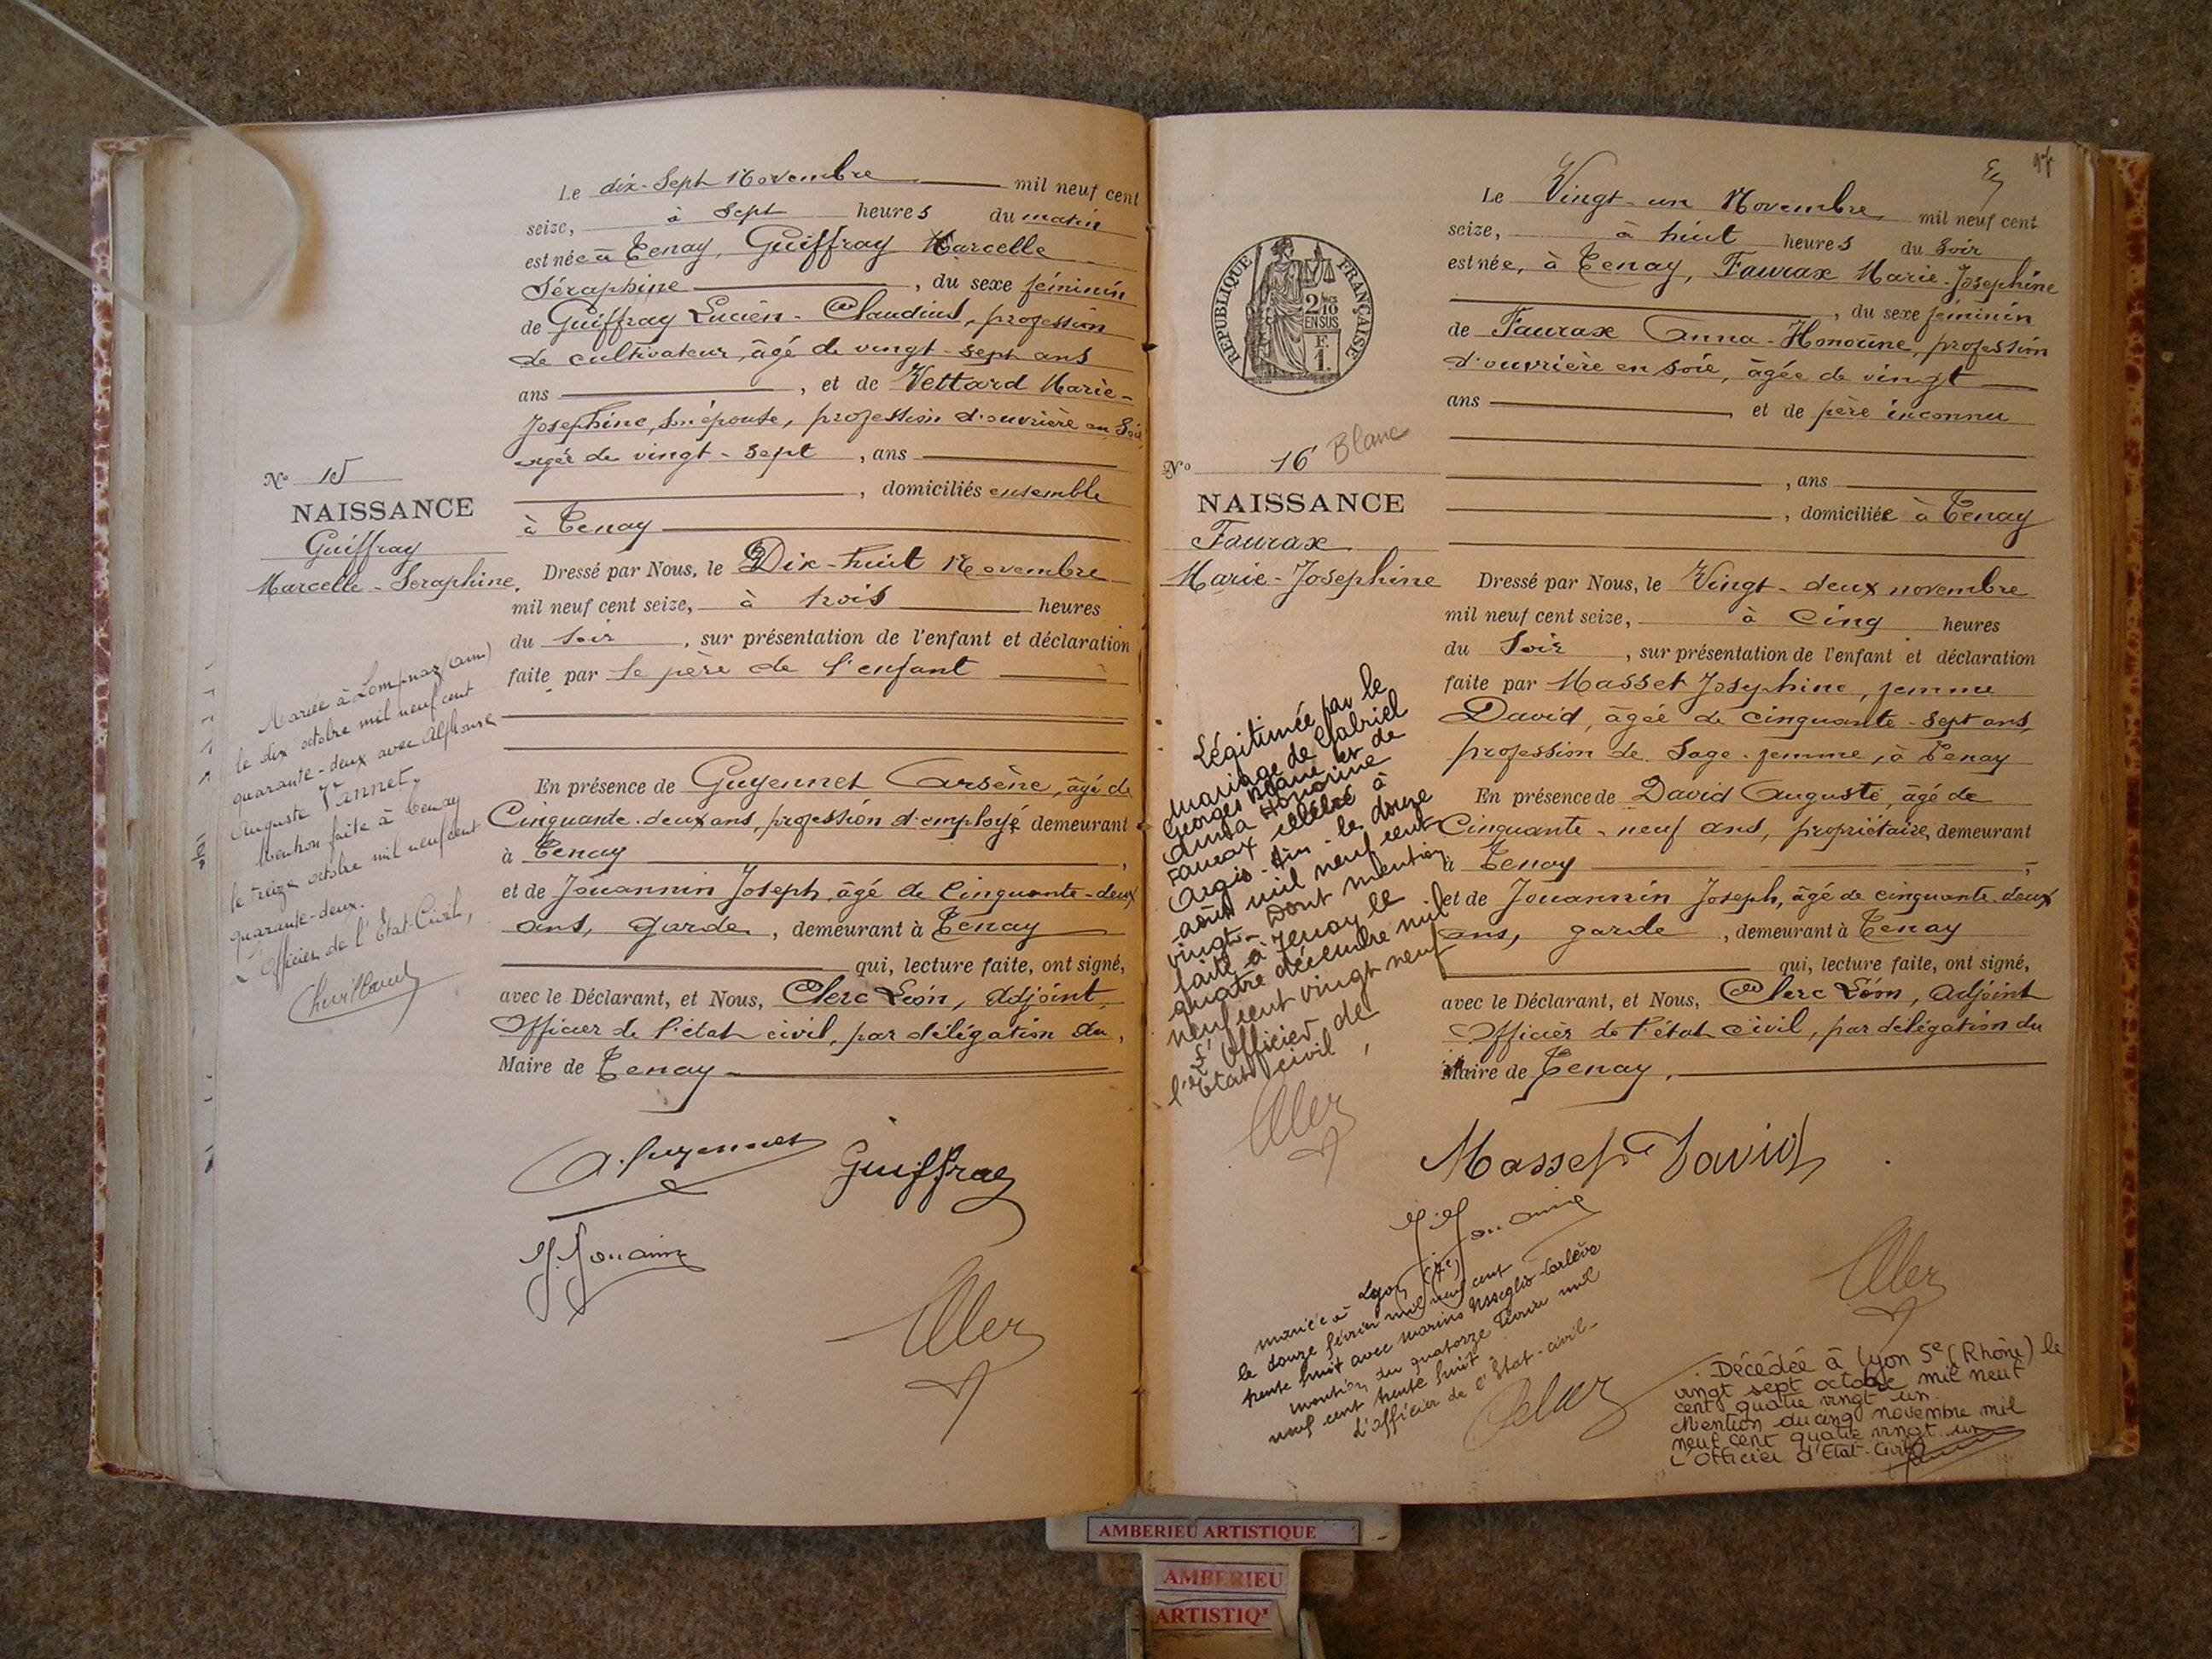 Le dix-Sept Novembre mil neuf cent
seize, à Sept heures du matin
est née à Tenay, Guiffray Marcelle
Séraphine, du sexe féminin
de Guiffray Lucien-Claudius, profession
de cultivateur, âgé de vingt-sept ans
ans, et de Vettard Marie-
Josephine, son épouse, profession d'ouvrière en Soie
âgée de vingt-sept, ans
, domiciliés ensemble
à Tenay
N° 15
NAISSANCE
Guiffray
Marcelle-Seraphine.
Dressé par Nous, le Dix-huit Novembre
mil neuf cent seize, à trois heures
du soir, sur présentation de l'enfant et déclaration
faite par le père de l'enfant
En présence de Guyennet Arsène, âgé de
Cinquante-deux ans, profession d'employé demeurant
à Tenay,
et de Jouannin Joseph, âgé de Cinquante-deux
ans, garde, demeurant à Tenay
qui, lecture faite, ont signé,
avec le Déclarant, et Nous, Clerc Léon, Adjoint,
Officier de l'état civil, par délégation du,
Maire de Tenay
Mariée à Lompnaz (Ain)
le dix octobre mil neuf cent
quarante-deux avec Alphonse
Auguste Vannet.
Mention faite à Tenay
le treize octobre mil neuf cent
quarante-deux.
L'Officier de l'Etat-Civil,
A. Guyennet Guiffray
J. Jouannin
Clerc
Le Vingt-un Novembre mil neuf cent
seize, à huit heures du Soir
est née, à Tenay, Faurax Marie-Josephine
, du sexe féminin
de Faurax Anna-Honorine, profession
d'ouvrière en soie, âgée de vingt
ans, et de père inconnu
, ans
, domiciliée à Tenay
REPUBLIQUE FRANÇAISE
2/10
EN SUS
F.
1.
N° 16 Blanc
NAISSANCE
Faurax
Marie-Josephine
Dressé par Nous, le Vingt-deux novembre
mil neuf cent seize, à Cinq heures
du Soir, sur présentation de l'enfant et déclaration
faite par Masset Josephine, femme
David, âgée de cinquante-sept ans,
profession de Sage-femme, à Tenay
En présence de David Auguste, âgé de
Cinquante-neuf ans, propriétaire, demeurant
à Tenay,
et de Jouannin Joseph, âgé de cinquante-deux
ans, garde, demeurant à Tenay
qui, lecture faite, ont signé,
avec le Déclarant, et Nous, Clerc Léon, Adjoint
Officier de l'état civil, par délégation du
Maire de Tenay.
Légitimée par le
mariage de Gabriel
Georges Blanc et de
Anna Honorine
Faurax célébré à
Argis-Ain-le douze
août mil neuf cent
vingt- Dont mention
faite à Tenay le
quatre décembre mil
neuf cent vingt neuf
L'officier de
l'Etat civil,
Clerc
Masset David
J. Jouannin
Clerc
mariée à Lyon (7e)
le douze février mil neuf cent
trente huit avec Marius Usseglio-Carlève
mention du quatorze février mil
neuf cent trente huit.
L'officier de l'Etat-civil-
Décédée à Lyon 5e (Rhône) le
vingt sept octobre mil neuf
cent quatre vingt un.
Mention du cinq novembre mil
neuf cent quatre vingt un
L'Officier d'Etat-Civil
AMBERIEU ARTISTIQUE
AMBERIEU
ARTISTIQ